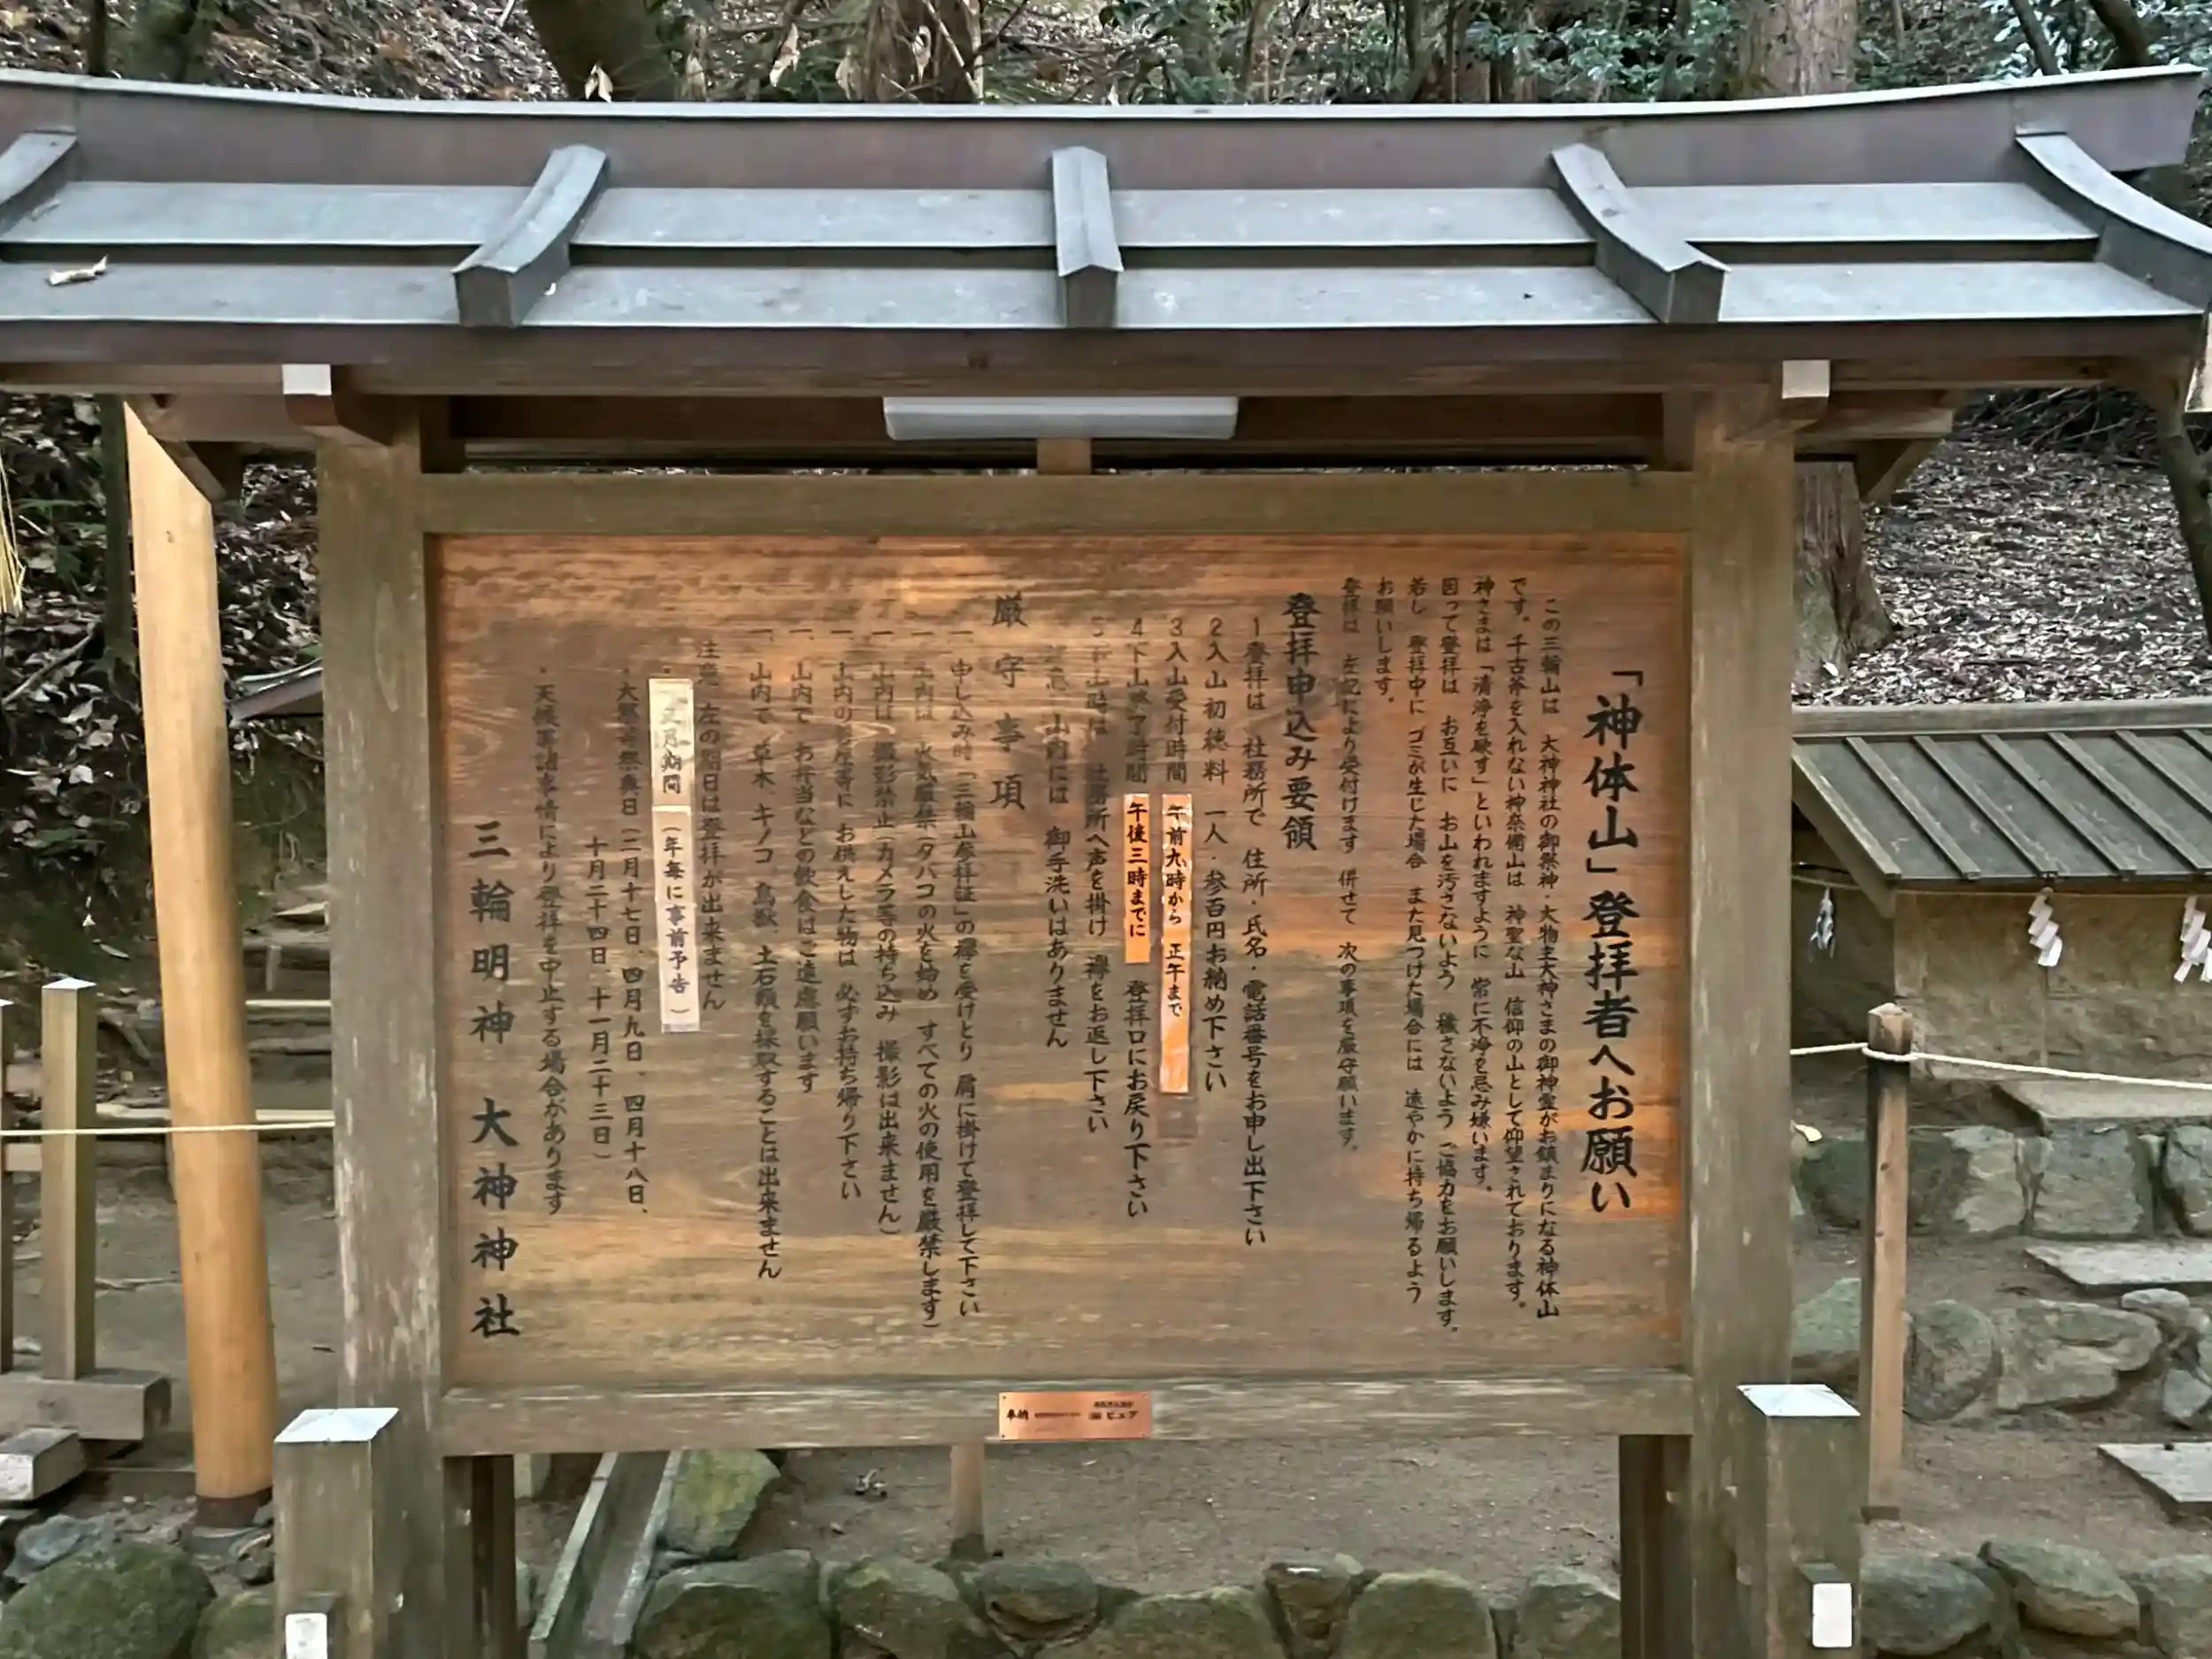 「神体山」登拝者へお願い
この三輪山は 大神神社の御祭神・大物主大神さまの御神霊がお鎮まりになる神体山
です。千古斧を入れない神奈備山は 神聖な山 信仰の山として仰望されております。
神さまは「清浄を硬す」といわれますように 常に不浄を忌み嫌います。
因って登拝は お互いに お山を汚さないよう 穢さないよう ご協力をお願いします。
若し 登拝中に ゴミが生じた場合 また見つけた場合には 速やかに持ち帰るよう
お願いします。
登拝は 左記により受付けます 併せて 次の事項を厳守願います。
登拝申込み要領
1 登拝は 社務所で 住所・氏名・電話番号をお申し出下さい
2 入山初穂料 一人・参百円お納め下さい
3 入山受付時間 午前九時から 正午まで
4 下山終了時間 午後三時までに 登拝口にお戻り下さい
5 下山時は 社務所へ声を掛け 襷をお返し下さい
注意 山内には 御手洗いはありません
厳守事項
一 申し込み時「三輪山参拝証」の襷を受けとり 肩に掛けて登拝して下さい
一 山内は 火気厳禁(タバコの火を始め すべての火の使用を厳禁します)
一 山内は 撮影禁止(カメラ等の持ち込み 撮影は出来ません)
一 山内の 等に お供えした物は 必ずお持ち帰り下さい
一 山内で お弁当などの飲食はご遠慮願います
一 山内で 草木、キノコ、鳥獣、土石類を採取することは出来ません
注意 左の期日は登拝が出来ません
・正月期間 (年毎に事前予告)
・大祭等祭典日(二月十七日、四月九日、四月十八日、
十月二十四日、十一月二十三日)
・天候等諸事情により登拝を中止する場合があります
三輪明神 大神神社
奉納 ピュア